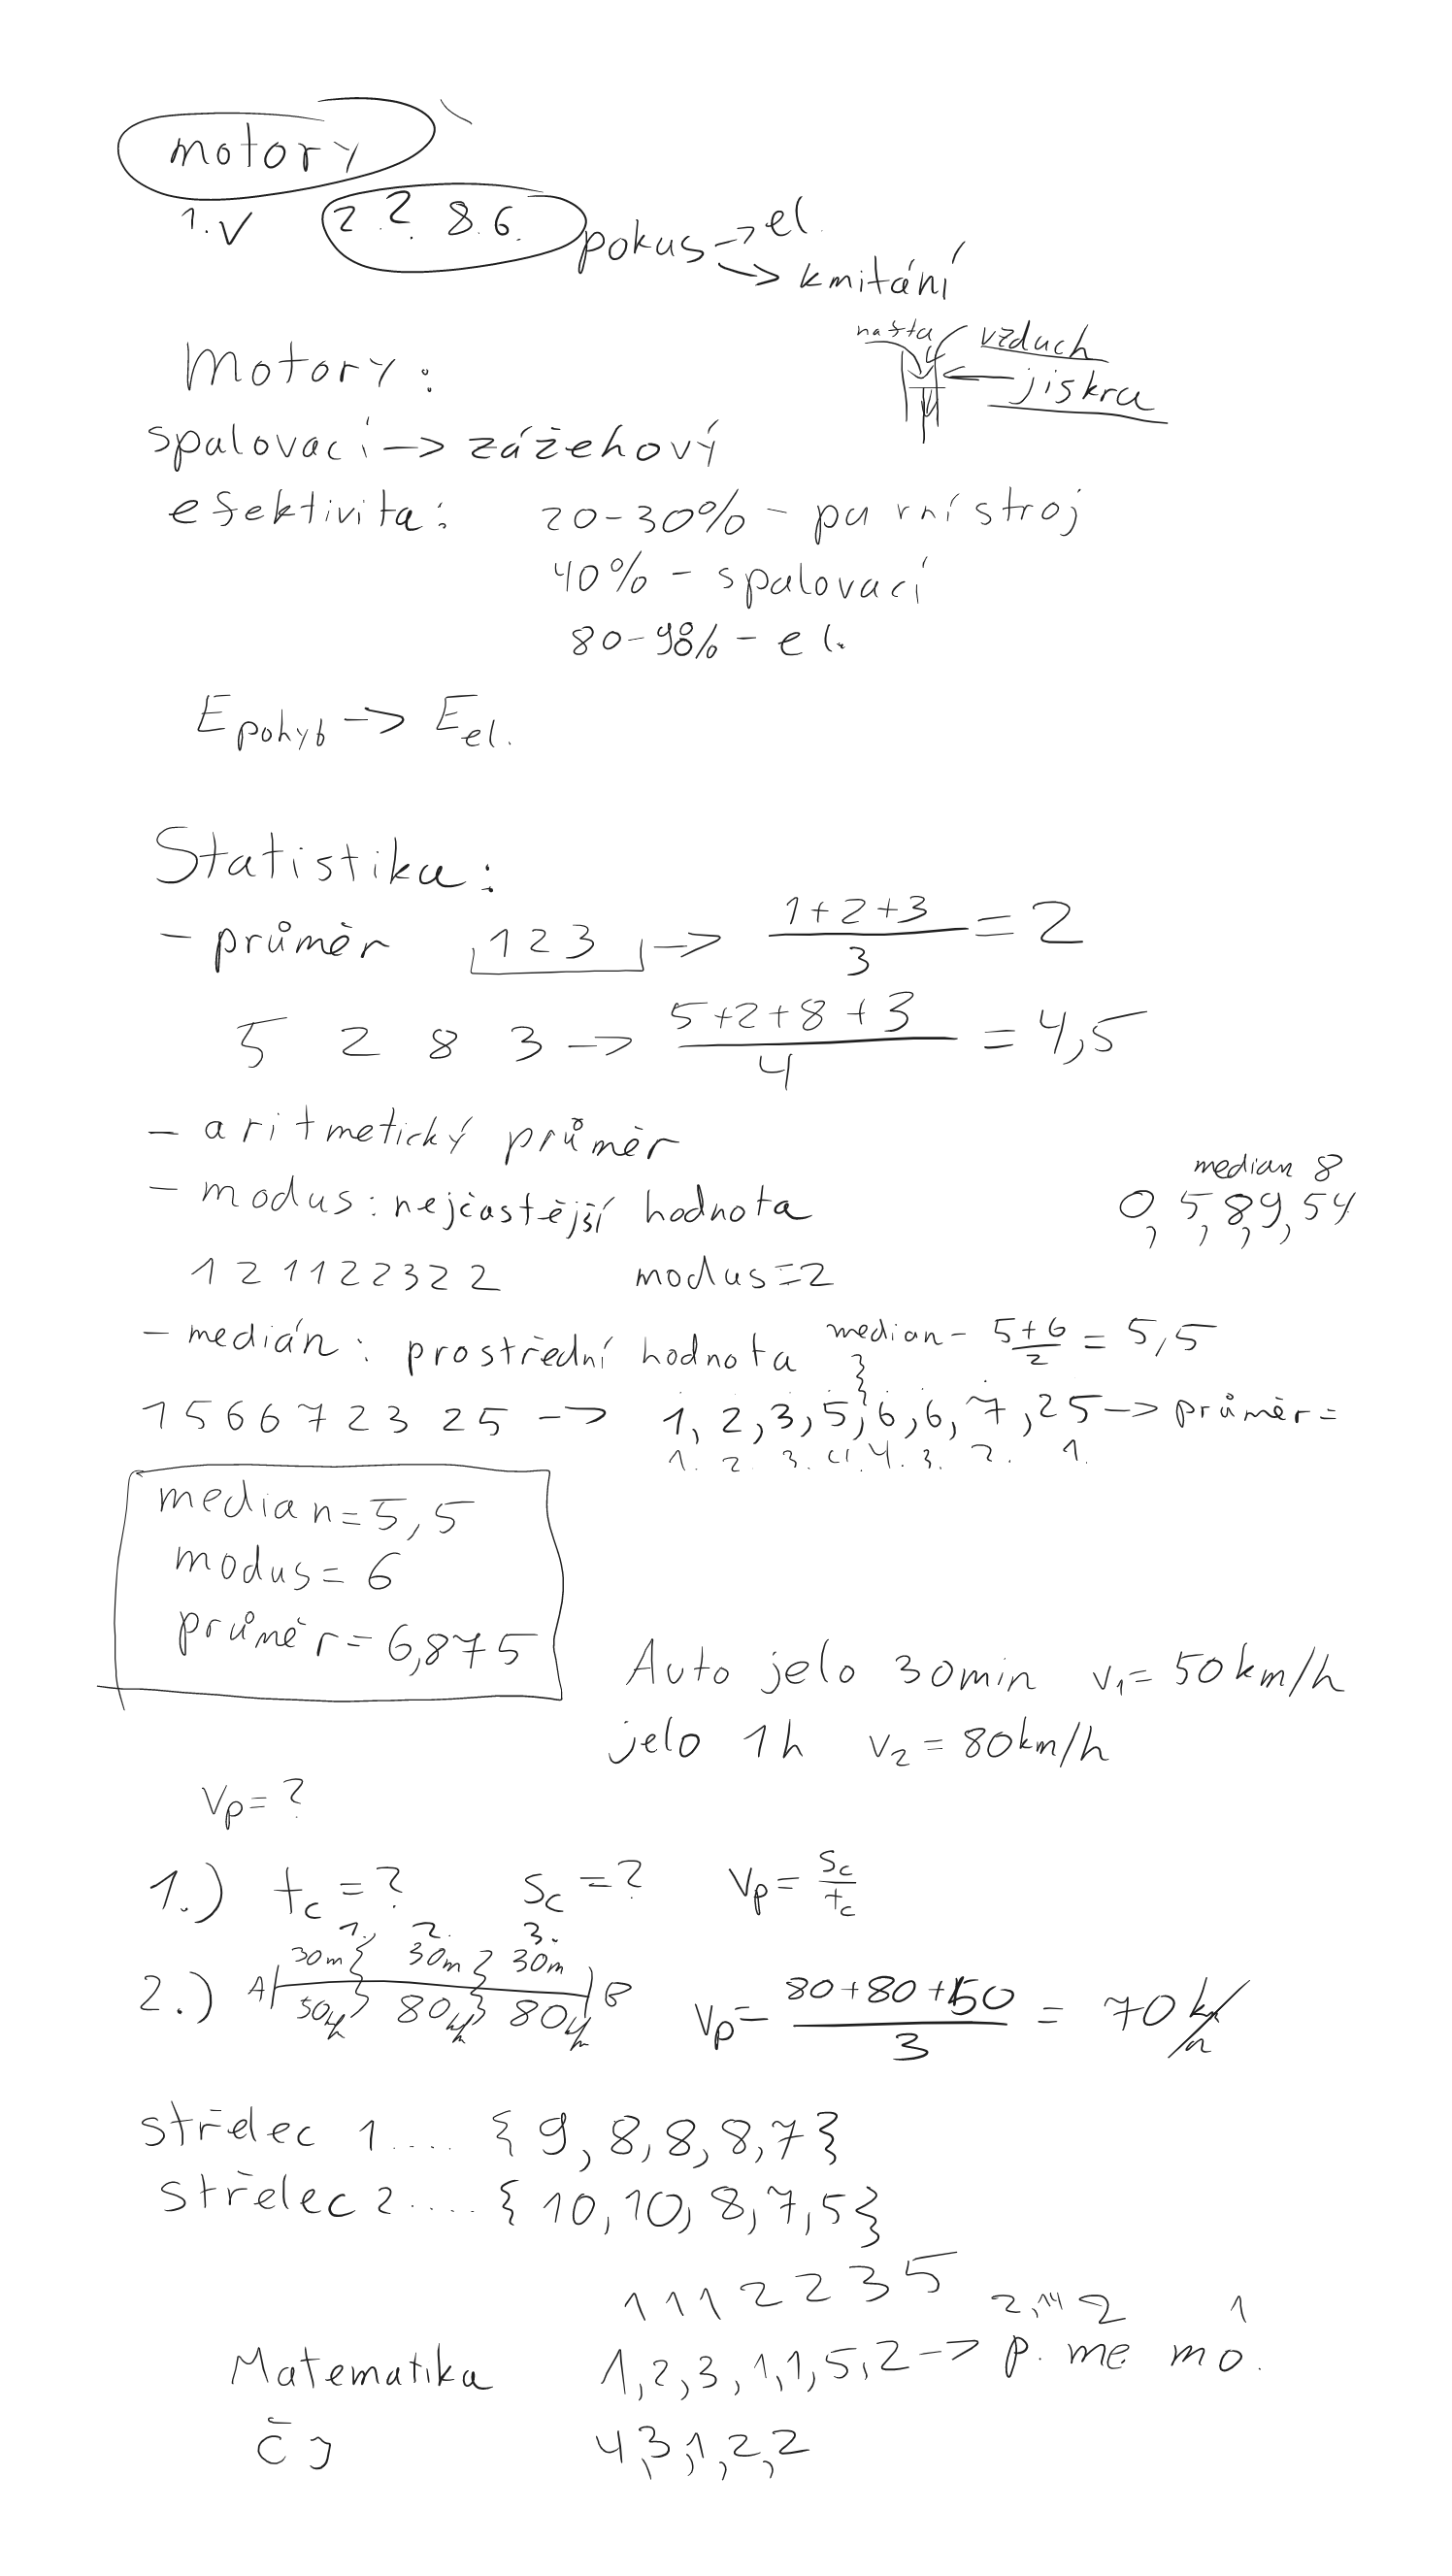 motory
1. V 2. 2. 8. 6. pokus -> el.
-> kmitání
nafta vzduch
Motory:
jiskra
spalovací -> zážehový
efektivita: 20-30% - parní stroj
40% - spalovací
80-98% - el.
E pohyb -> E el.
Statistika:
- průměr 1 2 3 -> (1+2+3)/3 = 2
5 2 8 3 -> (5+2+8+3)/4 = 4,5
- aritmetický průměr
median 8
- modus: nejčastější hodnota
0, 5, 8, 9, 54
1 2 1 1 2 2 3 2 2 modus=2
- medián: prostřední hodnota median - (5+6)/2 = 5,5
1 5 6 6 7 2 3 25 -> 1, 2, 3, 5, 6, 6, 7, 25 -> průměr =
1. 2. 3. 4. 4. 3. 2. 1.
median=5,5
modus=6
průměr=6,875
Auto jelo 30min v1=50km/h
jelo 1h v2=80km/h
vp=?
1.) tc=? sc=? vp=sc/tc
1. 2. 3.
30m 30m 30m
2.) A B vp=(80+80+50)/3 = 70 km/h
50 80 80
střelec 1.... {9, 8, 8, 8, 7}
střelec 2.... {10, 10, 8, 7, 5}
1 1 1 2 2 3 5 2,14 2 1
Matematika 1, 2, 3, 1, 1, 5, 2 -> p. me mo.
čj 4, 3, 1, 2, 2